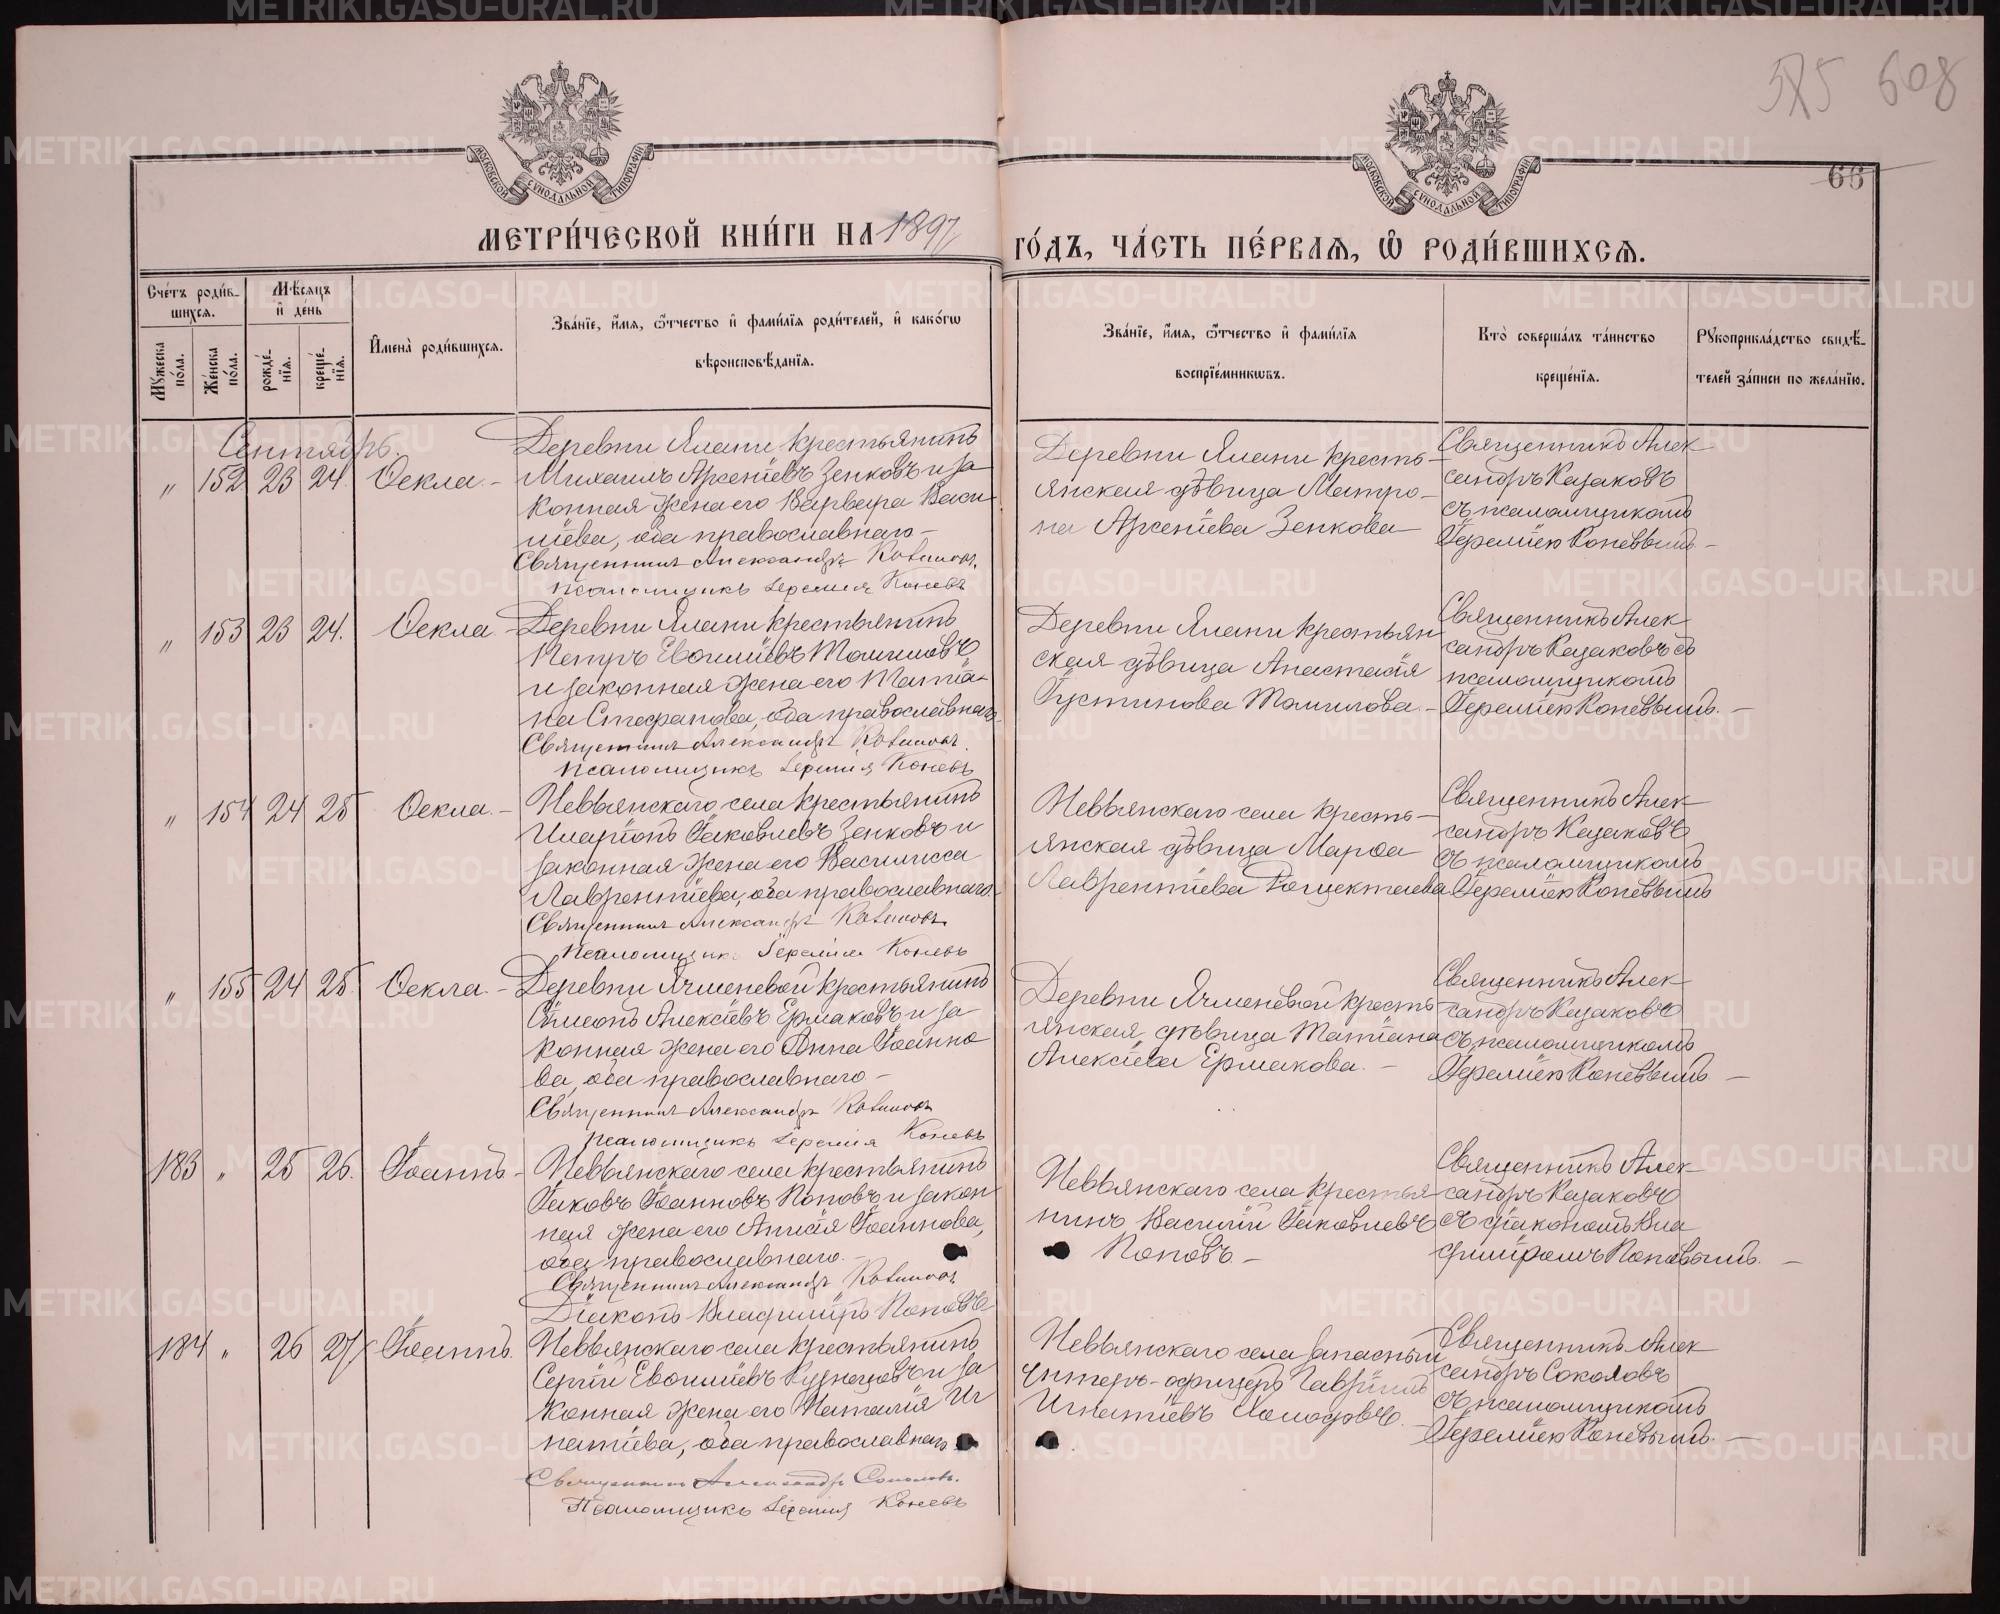 575 608
66
МОСКОВСКОЙ СѴНОДАЛЬНОЙ ТИПОГРАФІИ
МОСКОВСКОЙ СѴНОДАЛЬНОЙ ТИПОГРАФІИ
МЕТРИ́ЧЕСКОЙ КНИ́ГИ НА 1897
ГО́ДЪ, ЧА́СТЬ ПЕ́РВАЯ, Ѡ РОДИ́ВШИХСЯ.
Сче́тъ роди́в-
шихся.
Мѣ́сяцъ
и де́нь
Мꙋжеска по́ла.
Же́нска по́ла.
рожде́-
нїя.
креще́-
нїя.
И҆мена̀ роди́вшихся.
Зва́нїе, и҆́мя, ѻ҆́тчество и҆ фами́лїя роди́телей, и҆ како́гѡ
вѣроисповѣ́данїя.
Зва́нїе, и҆́мя, ѻ҆́тчество и҆ фами́лїя
воспрїе́мникѡвъ.
Кто̀ соверша́лъ та́инство
креще́нїя.
Рꙋкоприкла́дство свидѣ́-
телей за́писи по жела́нїю.
Сентябрь.
" 152 23 24 Ѳекла. -
Деревни Ялани крестьянинъ
Михаилъ Арсеніевъ Зенковъ и за
конная жена его Варвара Васи-
ліева, оба православнаго -
Священникъ Александръ Казаковъ.
псаломщикъ Іеремія Коневъ
Деревни Ялани кресть-
янская дѣвица Матро-
на Арсеніева Зенкова
Священникъ Алек-
сандръ Казаковъ
съ псаломщикомъ
Іереміею Коневымъ. -
" 153 23 24. Ѳекла -
Деревни Ялани крестьянинъ
Петръ Евѳиміевъ Томиловъ
и законная жена его Татіа-
на Стефанова, оба православнаго.
Священникъ Александръ Казаковъ.
псаломщикъ Іеремія Коневъ
Деревни Ялани крестьян
ская дѣвица Анастасія
Іустинова Томилова. -
Священникъ Алек
сандръ Казаковъ съ
псаломщикомъ
Іереміею Коневымъ. -
" 154 24 25 Ѳекла. -
Невьянскаго села крестьянинъ
Иларіонъ Іаковлевъ Зенковъ и
законная жена его Василисса
Лаврентіева, оба православнаго.
Священникъ Александръ Казаковъ
псаломщикъ Іеремія Коневъ
Невьянскаго села кресть-
янская дѣвица Марѳа
Лаврентіева
Священникъ Алек-
сандръ Казаковъ
съ псаломщикомъ
Іереміею Коневымъ
" 155 24 25. Ѳекла. -
Деревни Ячменевой крестьянинъ
Сѵмеонъ Алексіевъ Ермаковъ и за
конная жена его Анна Іоанно
ва, оба православнаго -
Священникъ Александръ Казаковъ
псаломщикъ Іеремія Коневъ
Деревни Ячменевой кресть
янская дѣвица Татіана
Алексіева Ермакова. -
Священникъ Алек-
сандръ Казаковъ
съ псаломщикомъ
Іереміею Коневымъ. -
183 " 25 26. Іоаннъ -
Невьянскаго села крестьянинъ
Іаковъ Іоанновъ Поповъ и закон
ная жена его Анисія Іоаннова,
оба православнаго. -
Священникъ Александръ Казаковъ
Діаконъ Владиміръ Поповъ
Невьянскаго села крестья
нинъ Василій Іаковлевъ
Поповъ. -
Священникъ Алек-
сандръ Казаковъ
съ діакономъ Вла
диміромъ Поповымъ. -
184 " 26 27 Іоаннъ.
Невьянскаго села крестьянинъ
Сергій Евѳиміевъ Кузнецовъ и за
конная жена его Наталія Иг
натіева, оба православнаго
Священникъ Александръ Соколовъ.
Псаломщикъ Іеремія Коневъ
Невьянскаго села запасный
унтеръ-офицеръ Гавріилъ
Игнатіевъ Холодовъ.
Священникъ Алек
сандръ Соколовъ
съ псаломщикомъ
Іереміею Коневымъ. -
METRIKI.GASO-URAL.RU